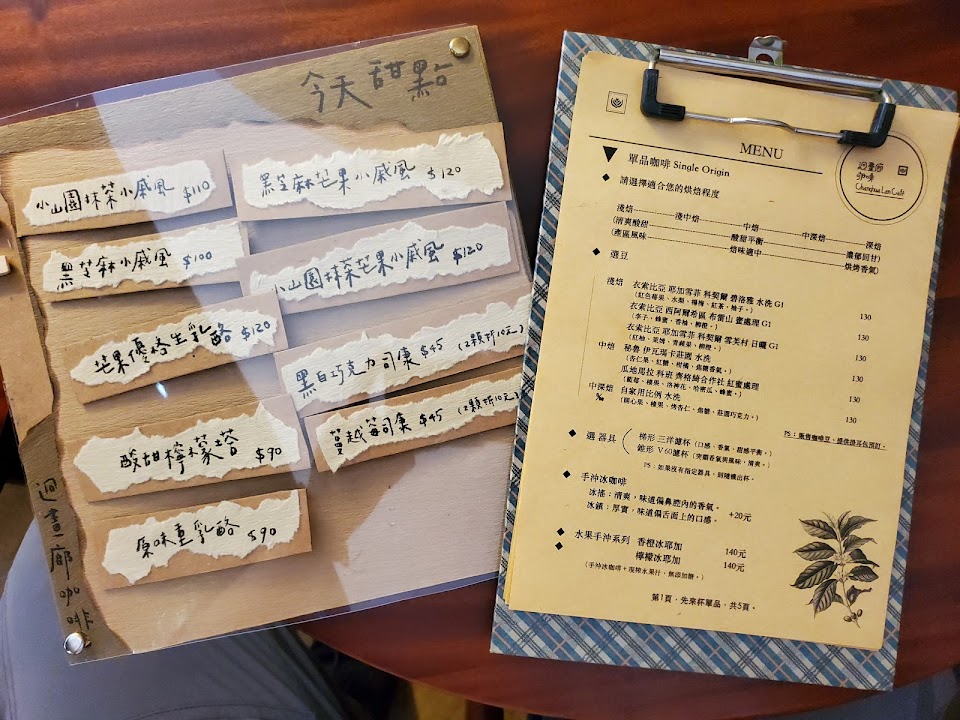 今天甜點
小山園抹茶小戚風 $110
黑芝麻芒果小戚風 $120
黑芝麻小戚風 $100
小山園抹茶芒果小戚風 $120
芒果優格生乳酪 $120
黑白巧克力司康 $45 (2顆折10元)
酸甜檸檬塔 $90
蔓越莓司康 $45 (2顆折10元)
原味重乳酪 $90
迴畫廊咖啡
MENU
迴畫廊
咖啡
Changhua Lan Café
單品咖啡 Single Origin
請選擇適合您的烘焙程度
淺焙 淺中焙 中焙 中深焙 深焙
(清爽酸甜 酸甜平衡 濃郁回甘)
(產區風味 焙味適中 烘烤香氣)
選豆
淺焙 衣索比亞 耶加雪菲 科契爾 碧洛雅 水洗 G1 130
衣索比亞 西阿爾希區 布雷山 蜜處理 G1 130
(李子、蜂蜜、香柚、柳橙。)
衣索比亞 耶加雪菲 科契爾 雪芙村 日曬 G1 130
中焙 秘魯 伊瓦瑪卡莊園 水洗 130
(杏仁果、紅糖、柑橘、焦糖香氣。)
瓜地馬拉 科班 齊格綺合作社 紅蜜處理 130
中深焙 自家用比例 水洗 130
(開心果、榛果、烤杏仁、焦糖、莊園巧克力。)
PS：販售咖啡豆、提供掛耳包預訂。
選器具 梯形 三洋濾杯 (口感、香氣、甜感平衡。)
錐形 V60濾杯 (突顯香氣與風味，清爽。)
PS：如果沒有指定器具，則隨機出杯。
手沖冰咖啡
冰搖：清爽，味道偏鼻腔內的香氣。
冰鎮：厚實，味道偏舌面上的口感。 +20元
水果手沖系列 香橙冰耶加 140元
檸檬冰耶加 140元
(手沖冰咖啡+現榨水果汁，無添加糖。)
第1頁，先來杯單品，共5頁。